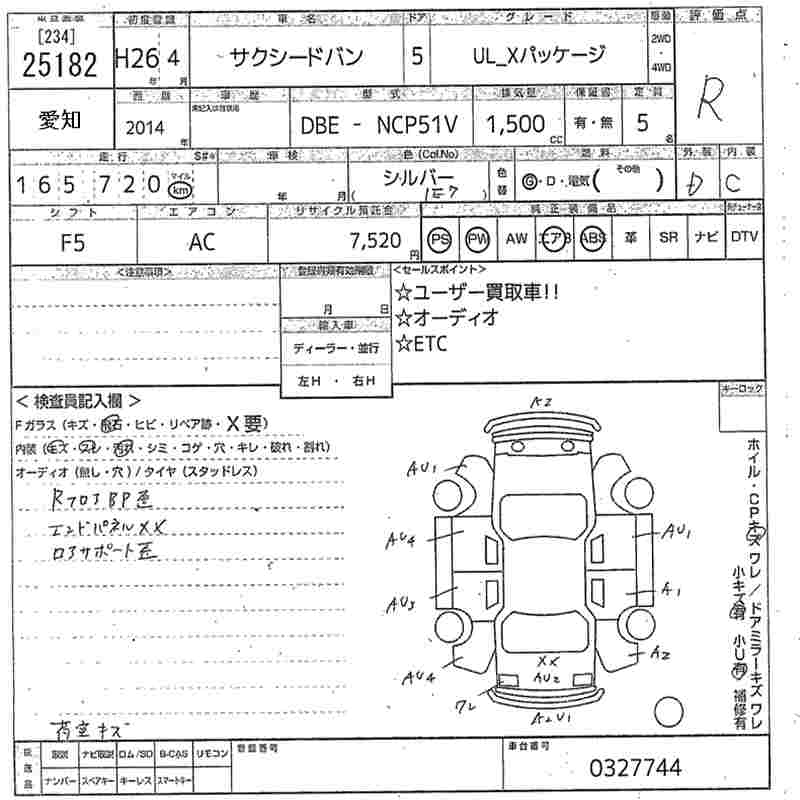 初度登録 車名 ドア グレード 評価点
[234]
25182 H26年 4月 サクシードバン 5 UL_Xパッケージ 2WD・4WD R
愛知 西暦 車歴 型式 排気量 保証書 定員
2014年 DBE - NCP51V 1,500cc 有・無 5名
走行 S#* 車検 色(Col.No) 燃料 (その他) 外装 内装
165720 マイル km 年 月 シルバー ( 1E7 ) 色替 G・D・電気( ) D C
シフト エアコン リサイクル預託金 純正装備品
F5 AC 7,520円 PS PW AW エアB ABS 革 SR ナビ DTV
<注意事項> <セールスポイント>
月 日
☆ユーザー買取車!!
輸入車
☆オーディオ
ディーラー・並行
☆ETC
左H ・ 右H
キーロック
<検査員記入欄>
Fガラス (キズ・飛石・ヒビ・リペア跡・X要)
内装 (キズ・スレ・汚れ・シミ・コゲ・穴・キレ・破れ・割れ)
オーディオ (無し・穴) / タイヤ (スタッドレス)
RフロアBP歪
エンドパネルXX
ロアサポート歪
荷室キズ
A2
AU1
AU4
AU3
AU4
AU1
A1
A2
XX
AU2
ワレ
A2U1
ホイル・CPキズ ワレ / ドアミラーキズ ワレ
小キズ有 小U有 補修有
取説 ナビ取説 ロム/SD B-CAS リモコン 登録番号 車台番号
ナンバー スペアキー キーレス スマートキー 0327744